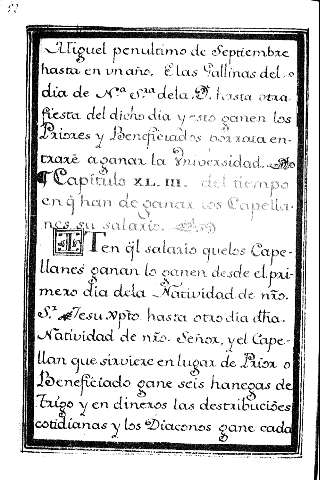 Miguel penultimo de Septiembre
hasta en vn año. E las Gallinas del
dia de Nrª. Srª. dela hasta otra
fiesta del dicho dia y esto ganen los
Priores y Beneficiados en-
trare a ganar la Universidad.
¶ Capitulo XL.III. del tiempo
en q̃ han de ganar los Capella-
nes su salario.
ITen q̃l salario que los Cape-
llanes ganan lo ganen desde el pri-
mero dia dela Natividad de nrõ.
Sr. Jesu Xpto. hasta otro dia dha.
Natividad de nrõ. Señor, y el Cape-
llan que sirviere en lugar de Prior o
Beneficiado gane seis hanegas de
Trigo y en dineros las destribuciões
cotidianas y los Diaconos gane cada